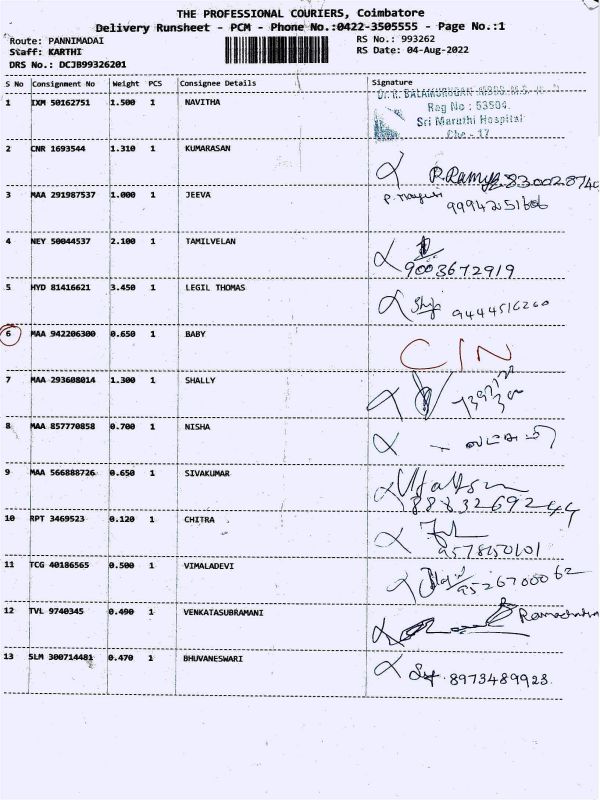 THE PROFESSIONAL COURIERS, Coimbatore
Delivery Runsheet - PCM - Phone No.:0422-3505555 - Page No.:1
Route: PANNIMADAI RS No.: 993262
Staff: KARTHI RS Date: 04-Aug-2022
DRS No.: DCJB99326201
S No Consignment No Weight PCS Consignee Details Signature
1 IXM 50162751 1.500 1 NAVITHA
Dr. R. BALAMURUGAN MBBS M.S.
Reg No : 53504
Sri Maruthi Hospital
Cbe - 17
2 CNR 1693544 1.310 1 KUMARASAN
P. Ramya
3 MAA 291987537 1.000 1 JEEVA
9994251606
4 NEY 50044537 2.100 1 TAMILVELAN
9003672919
5 HYD 81416621 3.450 1 LEGIL THOMAS
9444516260
6 MAA 942206300 0.650 1 BABY C/N
7 MAA 293608014 1.300 1 SHALLY
8 MAA 857770858 0.700 1 NISHA
9 MAA 566888726 0.650 1 SIVAKUMAR
8883269244
10 RPT 3469523 0.120 1 CHITRA
9578150101
11 TCG 40186565 0.500 1 VIMALADEVI
9526700062
12 TVL 9740345 0.490 1 VENKATASUBRAMANI
13 SLM 300714481 0.470 1 BHUVANESWARI
8973489923